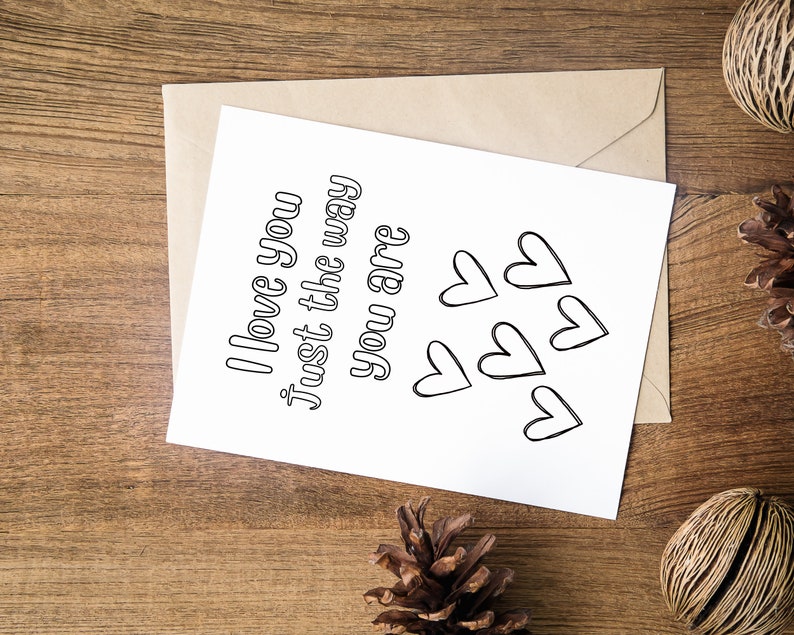 I love you
just the way
you are